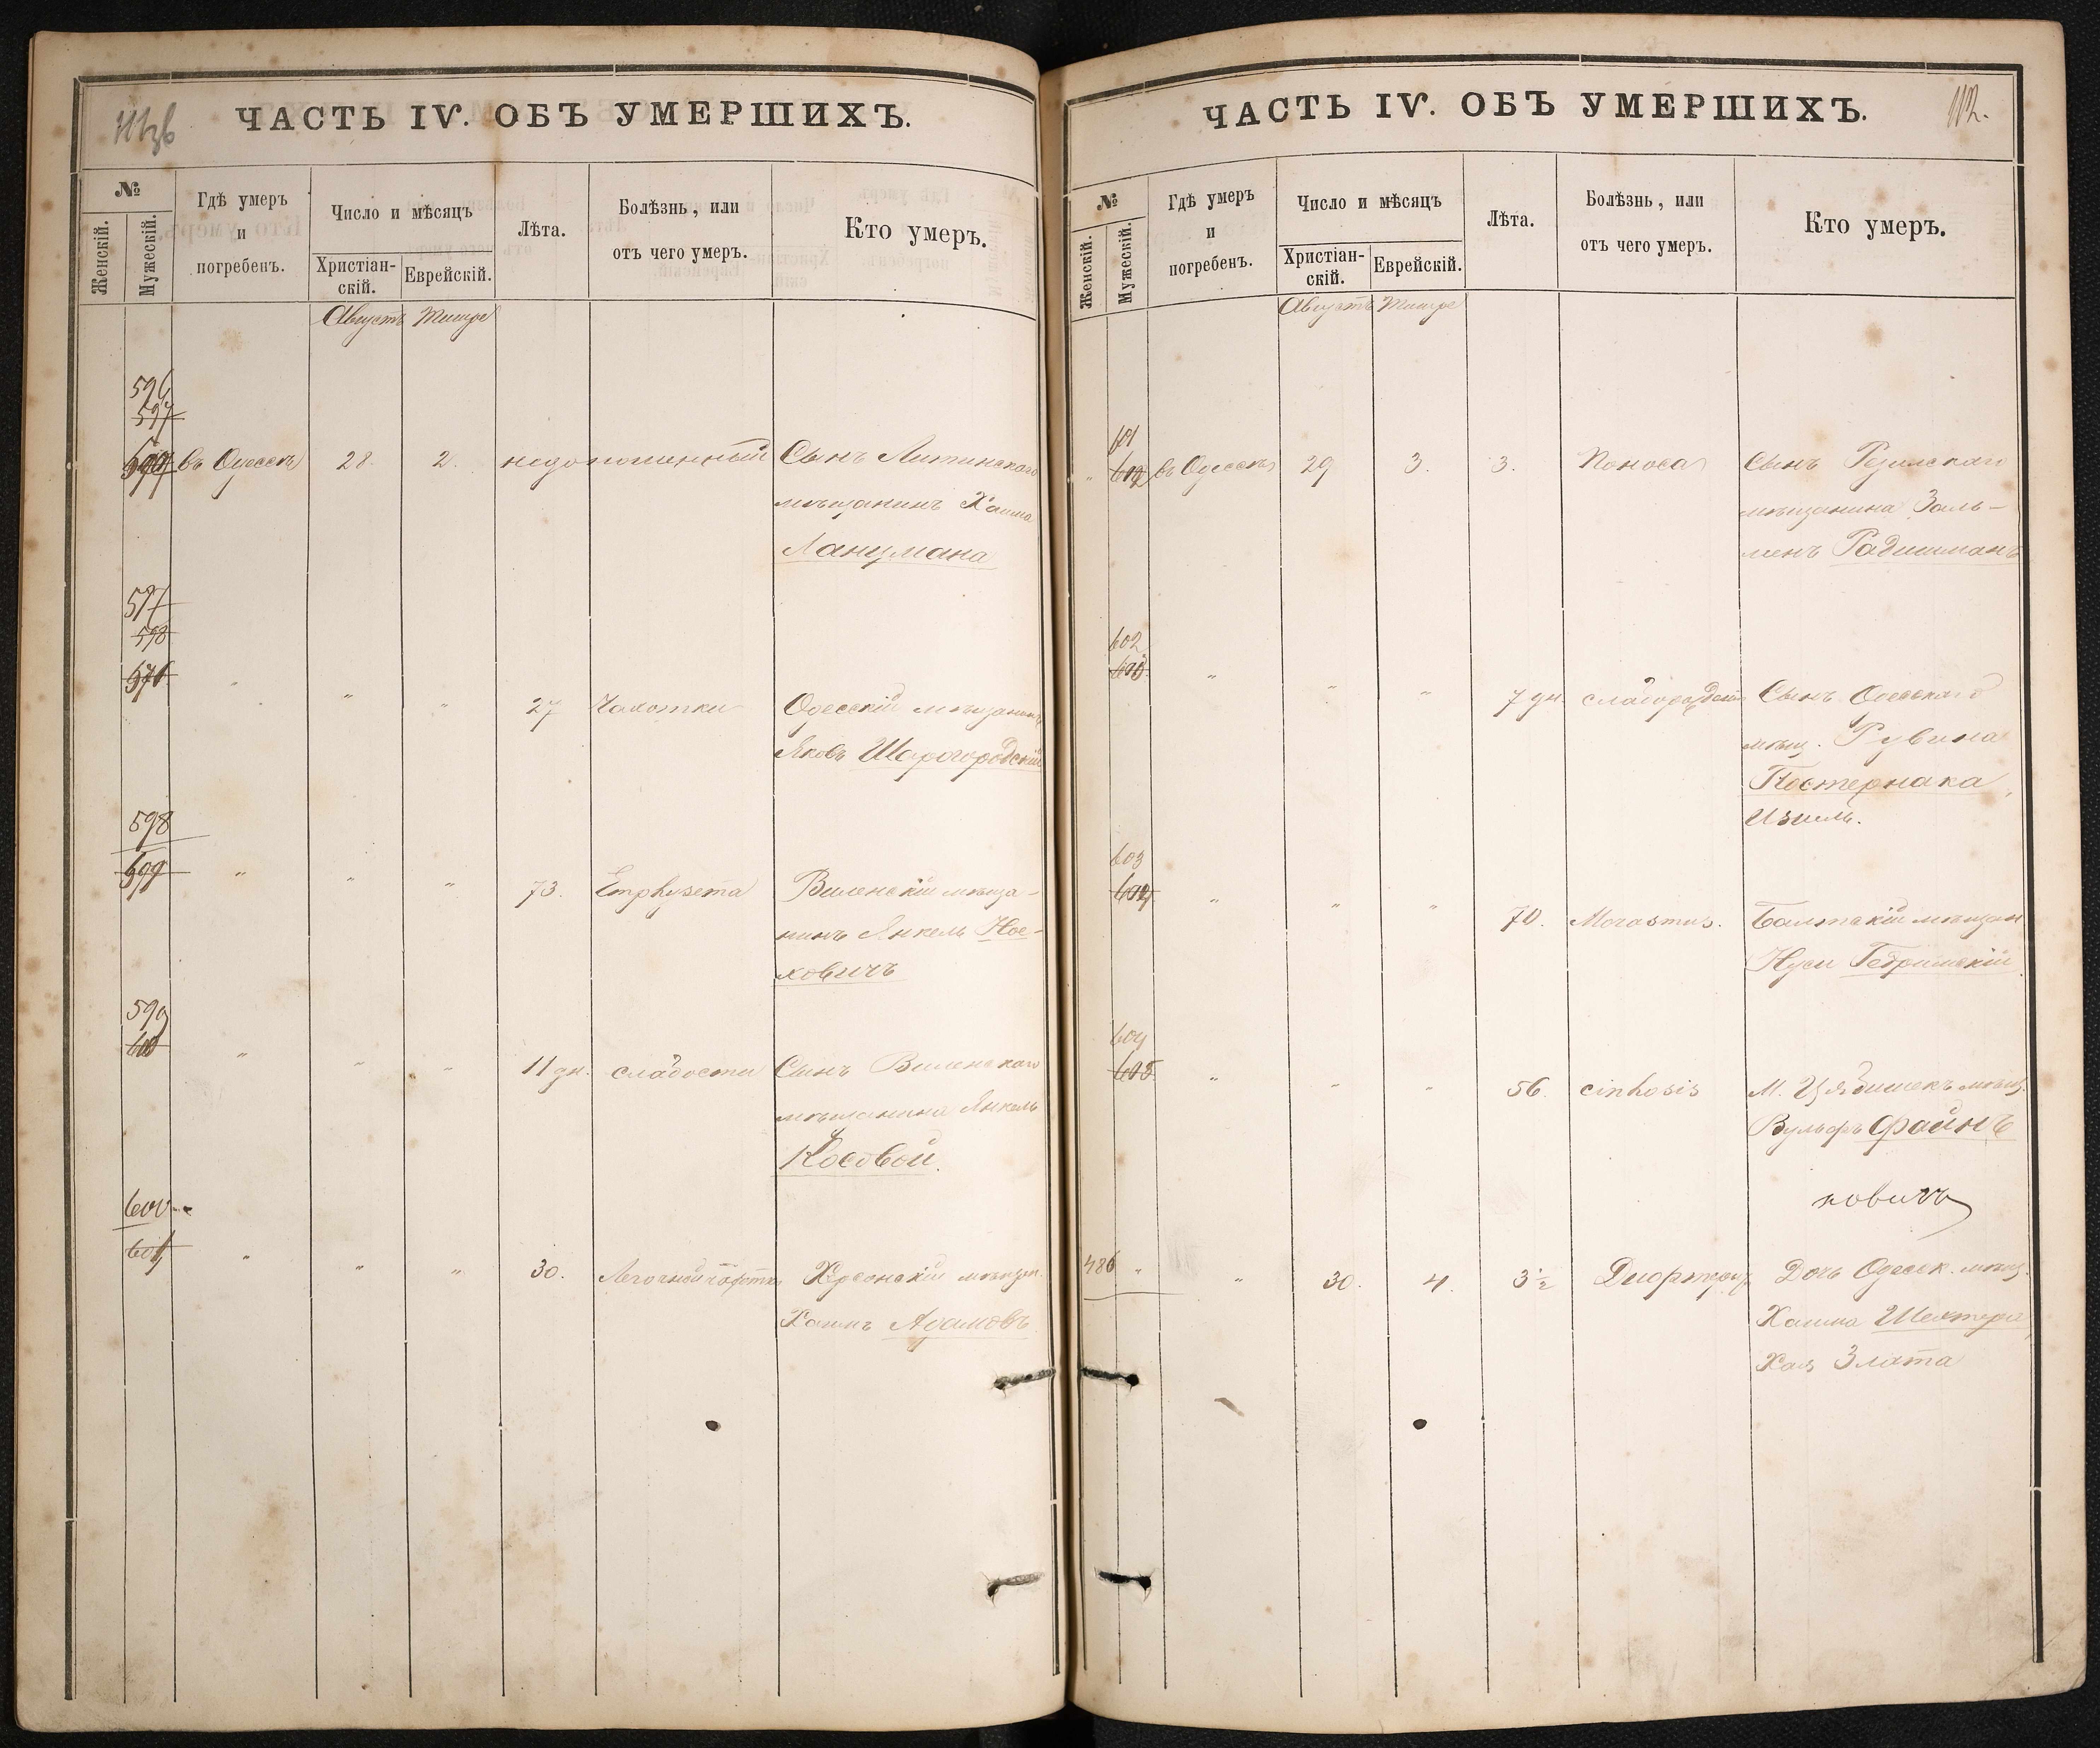 ЧАСТЬ IV. ОБЪ УМЕРШИХЪ.
№
Женскій.
Мужескій.
Гдѣ умеръ
и
погребенъ.
Число и мѣсяцъ
Христіан-
скій.
Еврейскій.
Лѣта.
Болѣзнь, или
отъ чего умеръ.
Кто умеръ.
Августъ Тишре
596
597
въ Одессѣ 28. 2. недоношенный Сынъ Литинскаго
мѣщанинъ Хаима
597
598
" " " 27 Чахотки Одесскій мѣщанинъ
Яковъ Шарогородскій
598
599 " " " 73. Emphysema Виленскій мѣща-
нинъ Янкель Нос-
ковичъ
599
600 " " " 11 дн. слабости Сынъ Виленскаго
мѣщанина Янкель
Косовой.
600
601 " " " 30. Херсонскій мѣщан.
Хаимъ Адамовъ
ЧАСТЬ IV. ОБЪ УМЕРШИХЪ.
112.
№
Женскій.
Мужескій.
Гдѣ умеръ
и
погребенъ.
Число и мѣсяцъ
Христіан-
скій.
Еврейскій.
Лѣта.
Болѣзнь, или
отъ чего умеръ.
Кто умеръ.
Августъ Тишре
601
" 602 въ Одессѣ 29 3. 3. Поноса Сынъ
мѣщанина Заль-
менъ
602
603 " " " 7 дн. Сынъ Одесскаго
мѣщ. Рувина
Постернака,
603
604 " " " 70. Marasmus. Балтскій мѣщан
604
605 " " " 56. cirrhosis М. мѣщ.
Вульфъ Файнъ
ковичъ
486 " " 30. 4. 3½ Дочь Одесск. мѣщ.
Хаима Шехтера,
Хая Злата